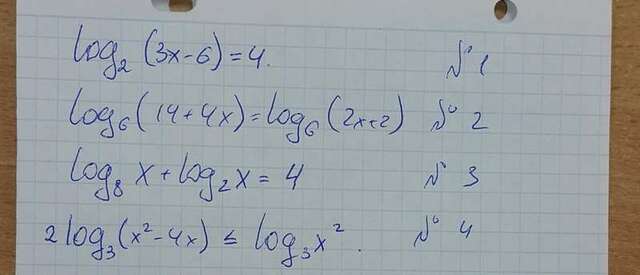 log₂ (3x-6) = 4. № 1
log₆ (14+4x) = log₆ (2x+2) № 2
log₈ x + log₂ x = 4 № 3
2 log₃ (x² - 4x) ≤ log₃ x². № 4